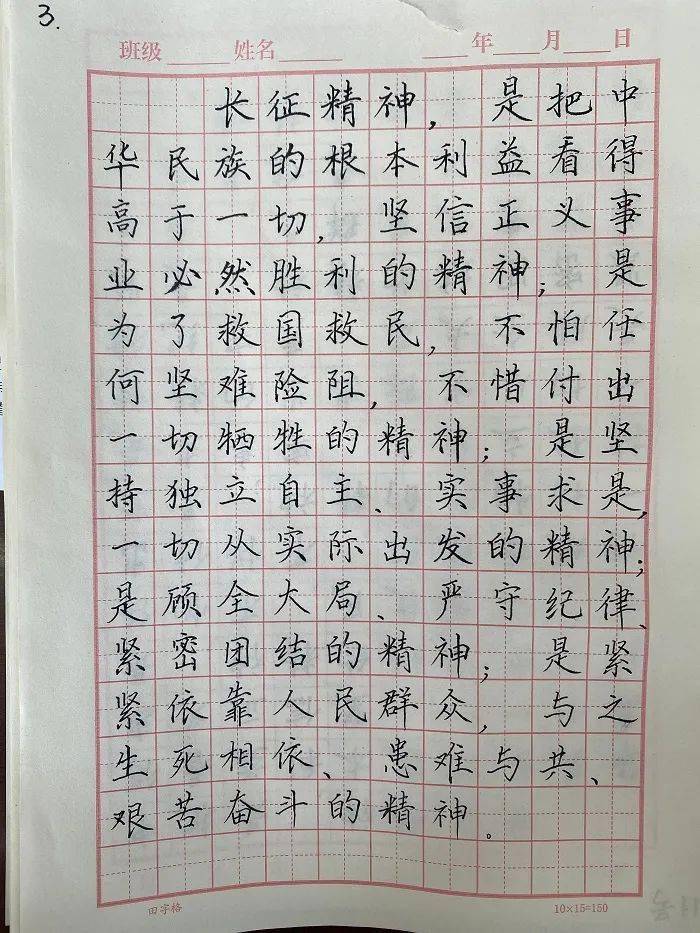 3.
班级 姓名 年 月 日
长征精神，是把中
华民族的根本利益看得
高于一切，坚信正义事
业必然胜利的精神；是
为了救国救民，不怕任
何坚难险阻，不惜付出
一切牺牲的精神；是坚
持独立自主、实事求是，
一切从实际出发的精神；
是顾全大局、严守纪律、
紧密团结的精神；是紧
紧依靠人民群众，与之
生死相依、患难与共、
艰苦奋斗的精神。
田字格 10×15=150